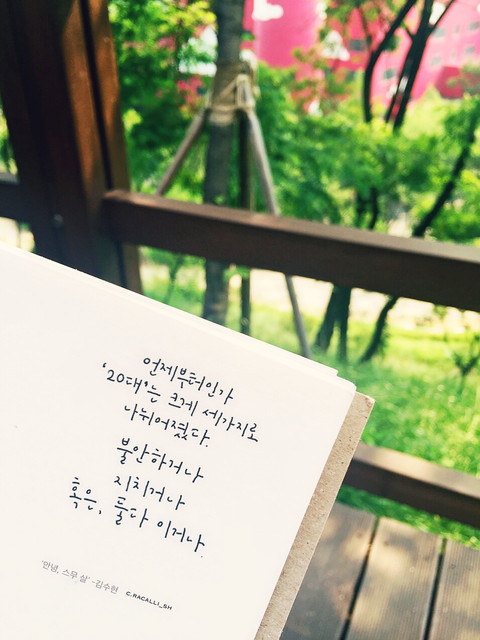 언제부터인가
'20대'는 크게 세가지로
나뉘어졌다.
불안하거나
지치거나
혹은, 둘다 이거나.
'안녕, 스무 살' -김수현 C.RACALLI_SH